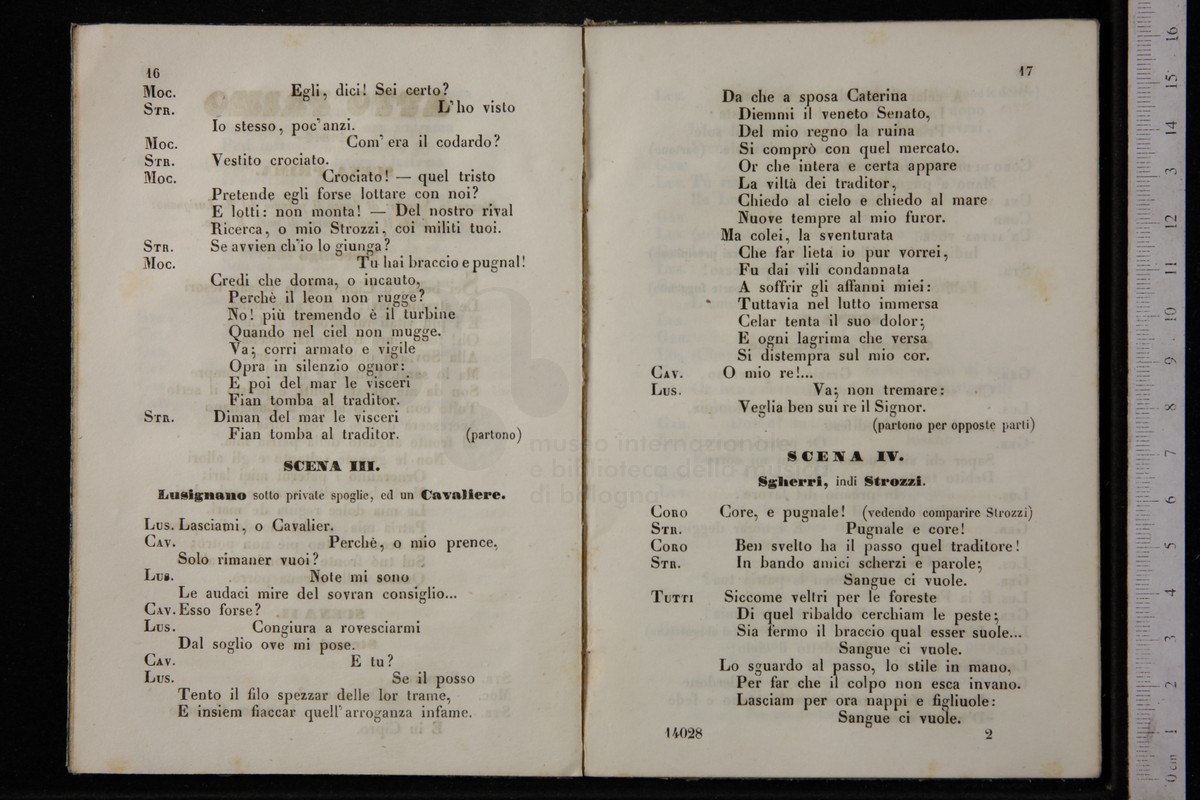 16
Moc. Egli, dici! Sei certo?
Str. L'ho visto
Io stesso, poc'anzi.
Moc. Com'era il codardo?
Str. Vestito crociato.
Moc. Crociato! — quel tristo
Pretende egli forse lottare con noi?
E lotti: non monta! — Del nostro rival
Ricerca, o mio Strozzi, coi militi tuoi.
Str. Se avvien ch'io lo giunga?
Moc. Tu hai braccio e pugnal!
Credi che dorma, o incauto,
Perchè il leon non rugge?
No! più tremendo è il turbine
Quando nel ciel non mugge.
Va; corri armato e vigile
Opra in silenzio ognor:
E poi del mar le visceri
Fian tomba al traditor.
Str. Diman del mar le visceri
Fian tomba al traditor. (partono)
SCENA III.
Lusignano sotto private spoglie, ed un Cavaliere.
Lus. Lasciami, o Cavalier.
Cav. Perchè, o mio prence,
Solo rimaner vuoi?
Lus. Note mi sono
Le audaci mire del sovran consiglio...
Cav. Esso forse?
Lus. Congiura a rovesciarmi
Dal soglio ove mi pose.
Cav. E tu?
Lus. Se il posso
Tento il filo spezzar delle lor trame,
E insiem fiaccar quell'arroganza infame.
17
Da che a sposa Caterina
Diemmi il veneto Senato,
Del mio regno la ruina
Si comprò con quel mercato.
Or che intera e certa appare
La viltà dei traditor,
Chiedo al cielo e chiedo al mare
Nuove tempre al mio furor.
Ma colei, la sventurata
Che far lieta io pur vorrei,
Fu dai vili condannata
A soffrir gli affanni miei:
Tuttavia nel lutto immersa
Celar tenta il suo dolor;
E ogni lagrima che versa
Si distempra sul mio cor.
Cav. O mio re!...
Lus. Va; non tremare:
Veglia ben sui re il Signor.
(partono per opposte parti)
SCENA IV.
Sgherri, indi Strozzi.
Coro Core, e pugnale! (vedendo comparire Strozzi)
Str. Pugnale e core!
Coro Ben svelto ha il passo quel traditore!
Str. In bando amici scherzi e parole;
Sangue ci vuole.
Tutti Siccome veltri per le foreste
Di quel ribaldo cerchiam le peste;
Sia fermo il braccio qual esser suole...
Sangue ci vuole.
Lo sguardo al passo, lo stile in mano,
Per far che il colpo non esca invano.
Lasciam per ora nappi e figliuole:
Sangue ci vuole.
14028 2
museo internazionale
e biblioteca della musica
di bologna
0 cm 1 2 3 4 5 6 7 8 9 10 11 12 13 14 15 16